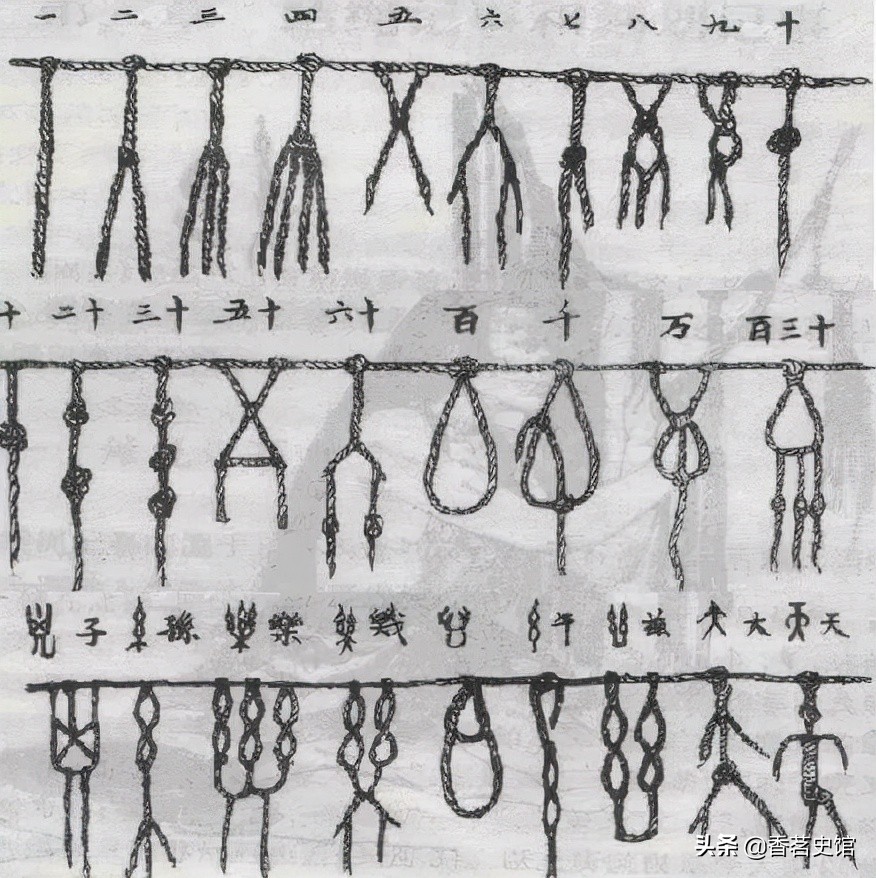 一 二 三 四 五 六 七 八 九 十
十 二十 三十 五十 六十 百 千 万 百三十
子 孫 樂 幾 午 茲 大 天
头条 @香茗史馆